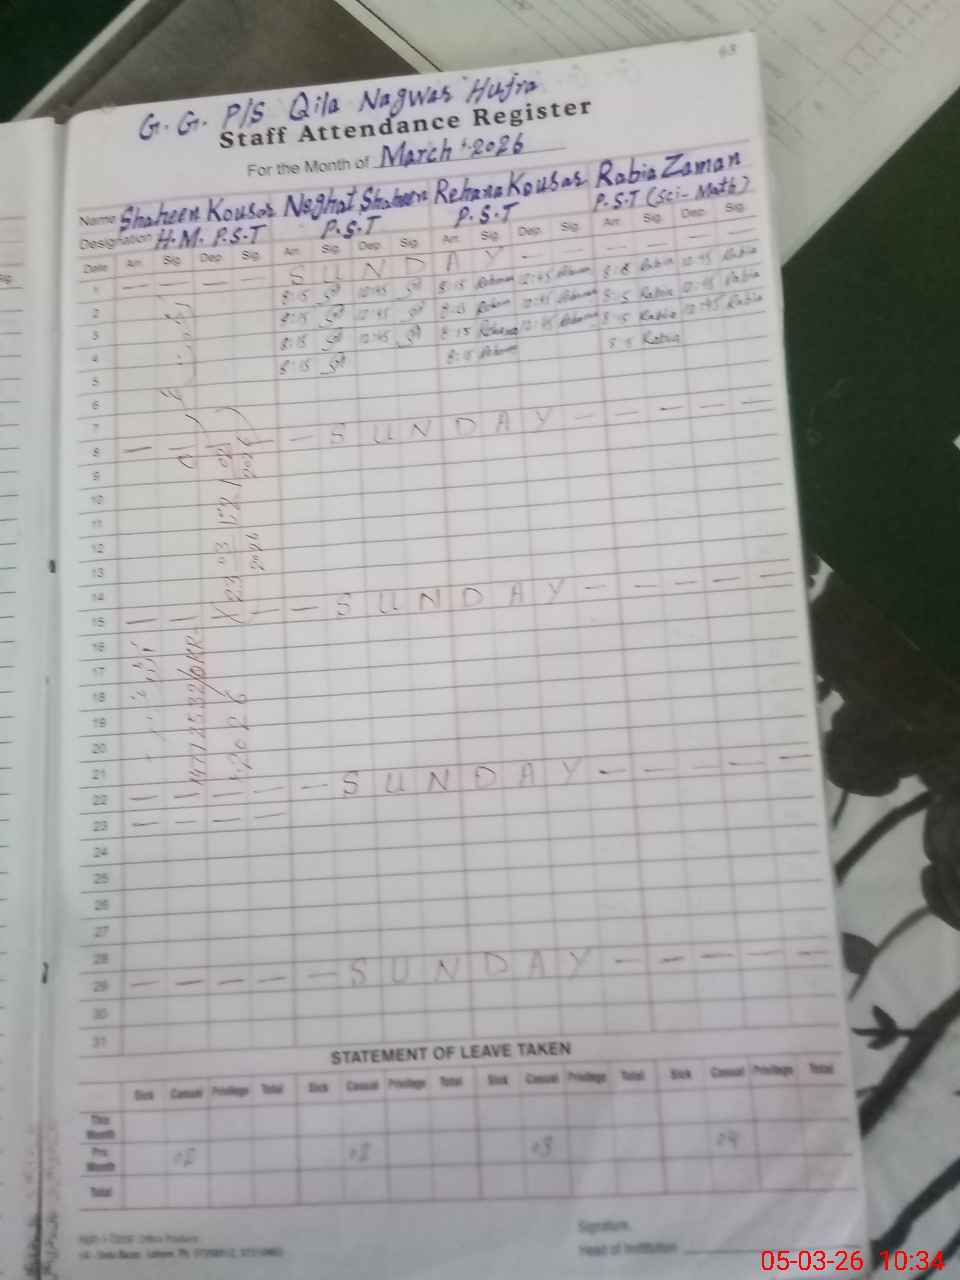 63
G. G. P/S Qila Nagwas Hujra
Staff Attendance Register
For the Month of March 2026
Name Shaheen Kousar Neghat Shaheen Rehana Kousar Rabia Zaman
Designation H.M. P.S.T P.S.T P.S.T P.S.T (Sci-Math)
Date Arr. Sig. Dep. Sig. Arr. Sig. Dep. Sig. Arr. Sig. Dep. Sig. Arr. Sig. Dep. Sig.
1 — — — — S U N D A Y — — — — — —
2 8:15 12:45 8:15 Rehana 12:45 Rehana 8:15 Rabia 12:45 Rabia
3 8:15 12:45 8:15 Rehana 12:45 Rehana 8:15 Rabia 12:45 Rabia
4 8:15 12:45 8:15 Rehana 12:45 Rehana 8:15 Rabia 12:45 Rabia
5 8:15 8:15 Rehana Rabia
6
7
8 — — — — — S U N D A Y — — — — —
9
10
11
12
13
14
15 — — — — — S U N D A Y — — — — —
16
17
18
19
20
21
22 — — — — — S U N D A Y — — — — —
23 — — — —
24
25
26
27
28
29 — — — — — S U N D A Y — — — — —
30
31
STATEMENT OF LEAVE TAKEN
Sick Casual Privilege Total Sick Casual Privilege Total Sick Casual Privilege Total Sick Casual Privilege Total
This Month
Pre. Month 02 02 03 04
Total
Signature
Head of Institution
05-03-26 10:34